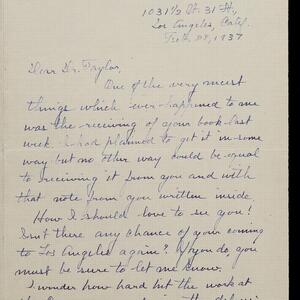 1031½ W. 31 St.,
Los Angeles, Calif.
Feb. 28, 1937
Dear Dr. Taylor,
One of the very nicest
things which ever happened to me
was the receiving of your book last
week. I had planned to get it in some
way but no other way could be equal
to receiving it from you and with
that note from you written inside.
How I should love to see you!
Isn't there any chance of your coming
to Los Angeles again? If you do, you
must be sure to let me know.
I wonder how hard hit the work at
the